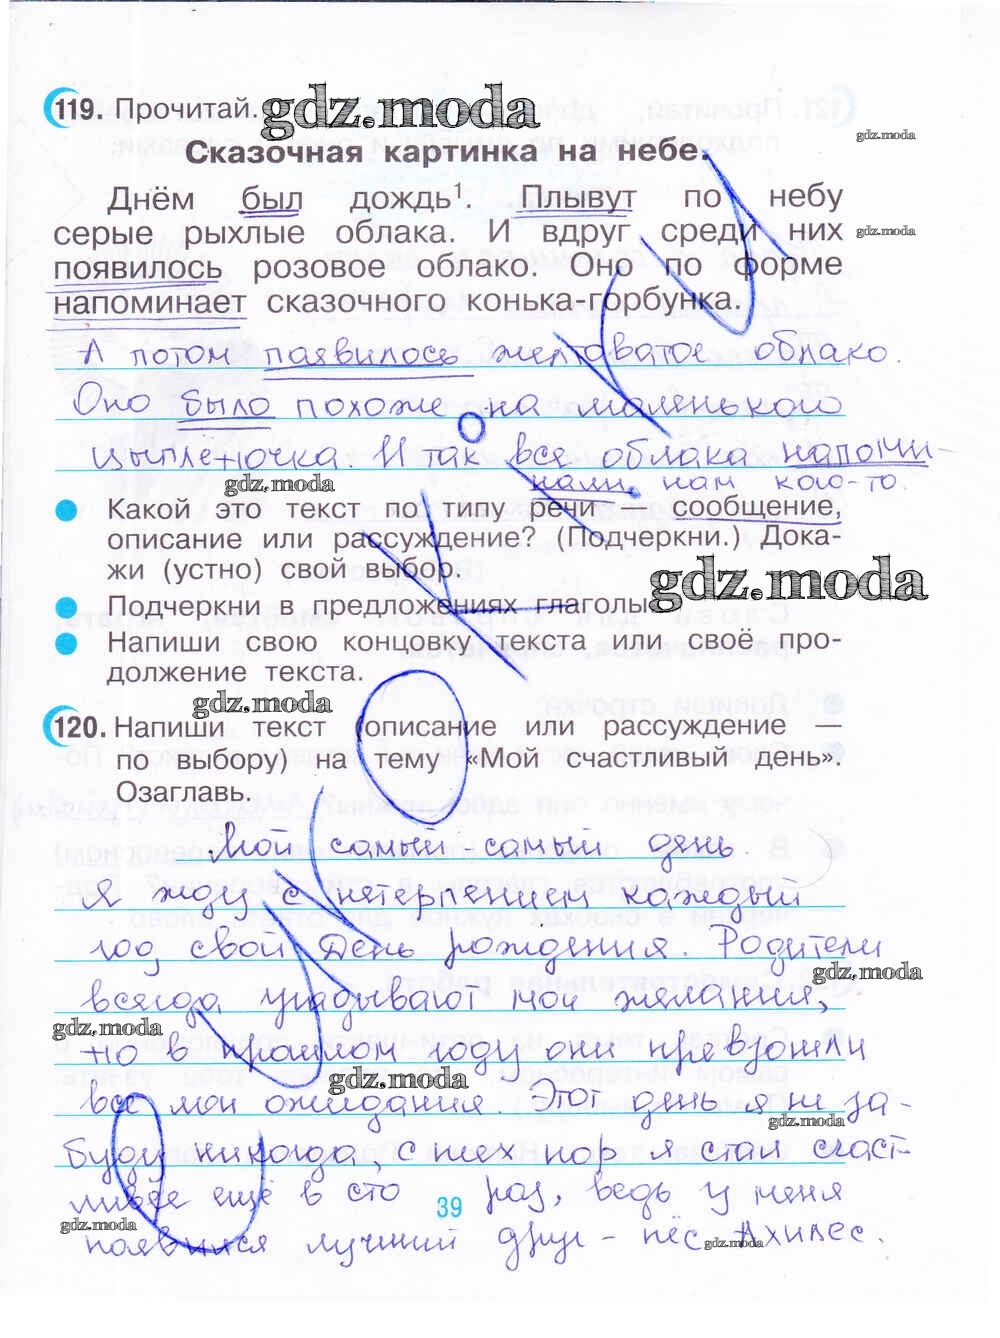 119. Прочитай. gdz.moda
gdz.moda
Сказочная картинка на небе.
Днём был дождь¹. Плывут по небу
серые рыхлые облака. И вдруг среди них gdz.moda
появилось розовое облако. Оно по форме
напоминает сказочного конька-горбунка.
А потом появилось желтоватое облако.
Оно было похоже на маленького
цыплёночка. И так все облака напоми-
нали нам кого-то.
gdz.moda
Какой это текст по типу речи – сообщение,
описание или рассуждение? (Подчеркни.) Дока-
жи (устно) свой выбор.
gdz.moda
Подчеркни в предложениях глаголы.
Напиши свою концовку текста или своё про-
должение текста.
gdz.moda
120. Напиши текст (описание или рассуждение —
по выбору) на тему «Мой счастливый день».
Озаглавь.
Мой самый самый день
Я жду с нетерпением каждый
год свой День рождения. Родители
gdz.moda
всегда угадывают мои желания,
gdz.moda
но в прошлом году они превзошли
gdz.moda
все мои ожидания. Этот день я не за-
gdz.moda
буду никогда, с них пор я стал счаст-
ливее ещё в сто раз, ведь у меня
39
gdz.moda
появился лучший друг – пёс Ахилес.
gdz.moda